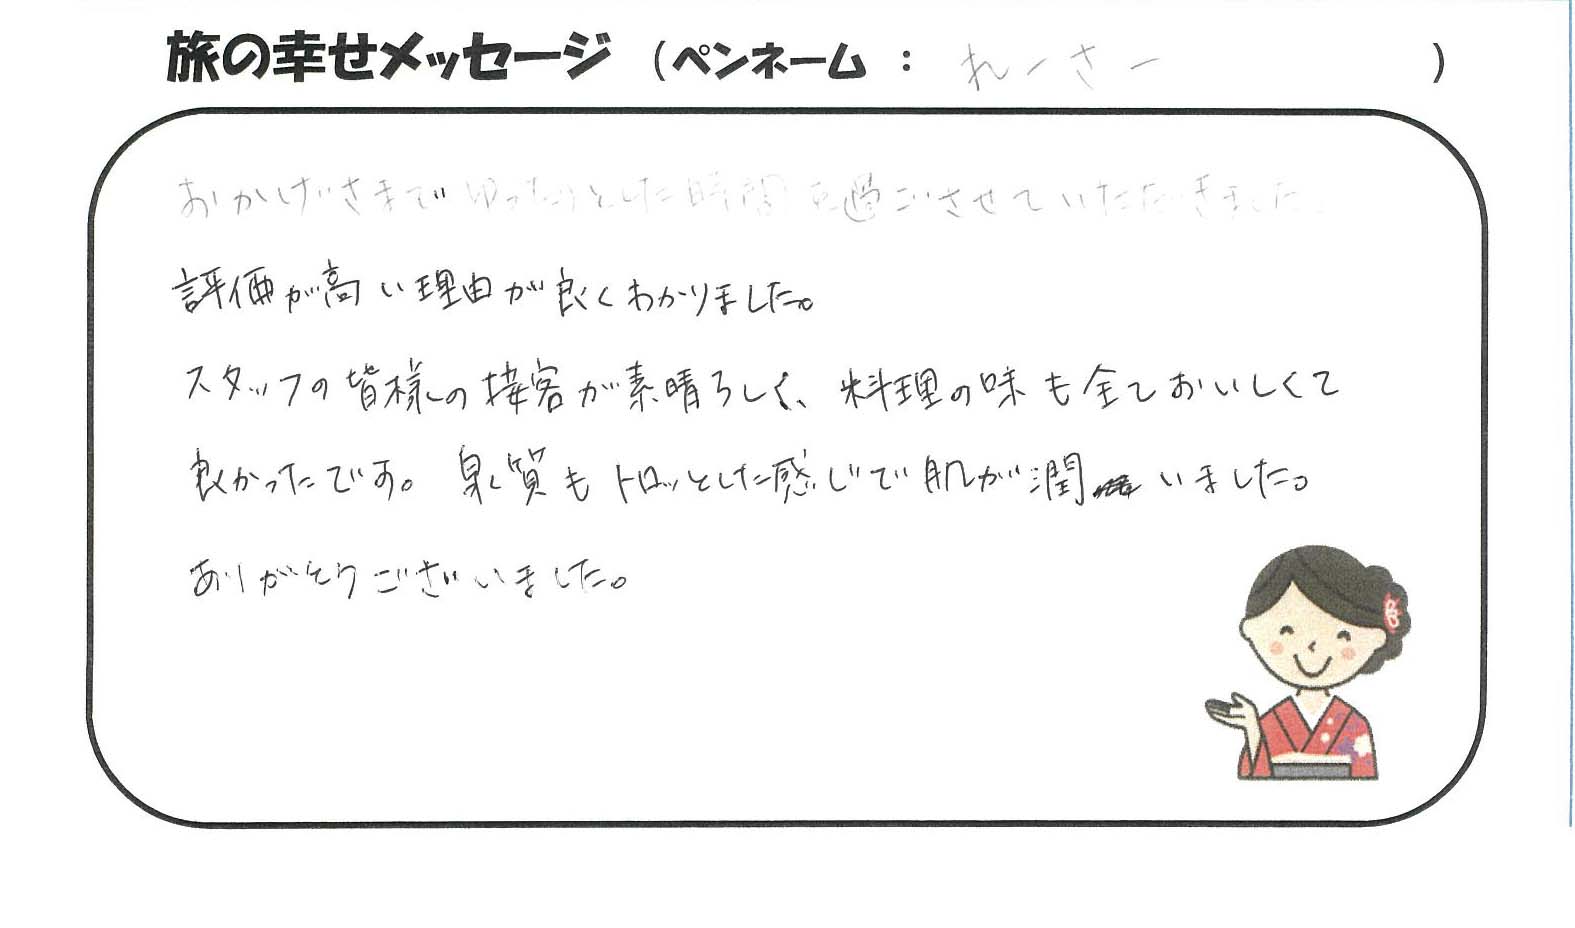 旅の幸せメッセージ (ペンネーム : れーさー )
おかげさまでゆったりとした時間を過ごさせていただきました。
評価が高い理由が良くわかりました。
スタッフの皆様の接客が素晴らしく、料理の味も全ておいしくて
良かったです。泉質もトロッとした感じで肌が潤いました。
ありがとうございました。